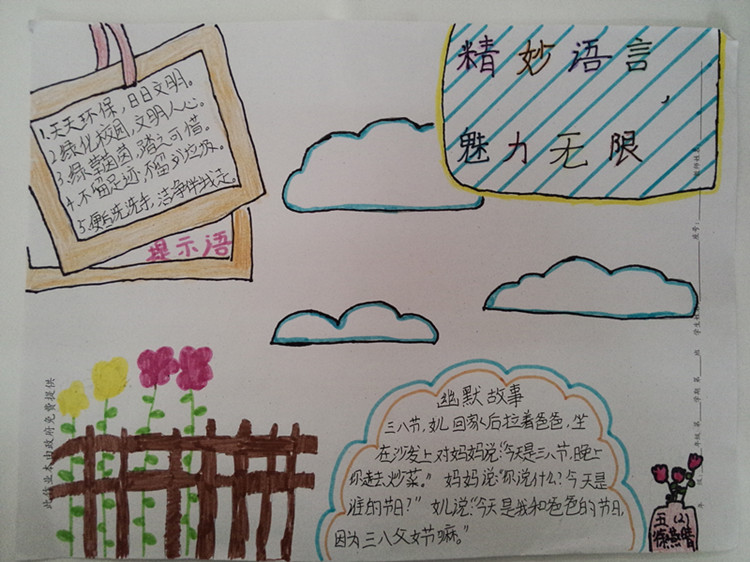 精妙语言,
魅力无限
1.天天环保,日日文明。
2.绿化校园,文明人人心。
3.绿草茵茵,踏之可惜。
4.不留足迹,不留到垃圾。
5.便后洗洗手,洁净伴我走。
提示语
幽默故事
三八节,女儿回家后拉着爸爸,坐
在沙发上对妈妈说:“今天是三八节,晚上
你去炒菜。”妈妈说:“你说什么?今天是
谁的节日?”女儿说:“今天是我和爸爸的节日,
因为三八父女节嘛。”
五(2)
此作业本由政府免费提供